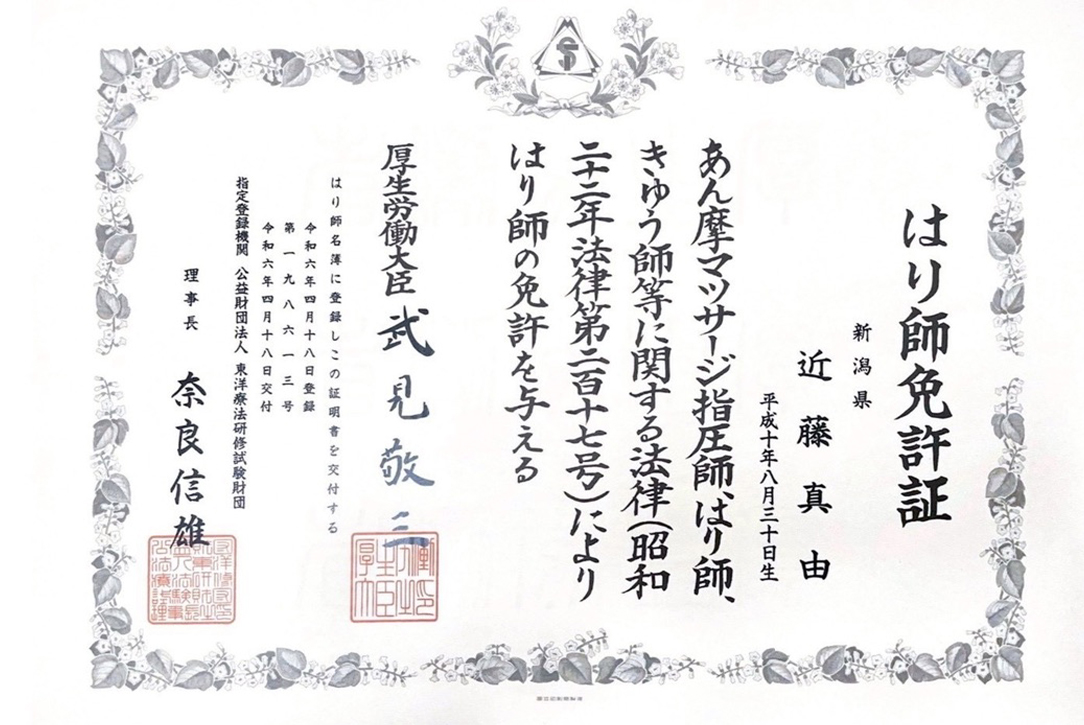 はり師免許証
新潟県
近藤真由
平成十年八月三十日生
あん摩マツサージ指圧師、はり師、
きゆう師等に関する法律(昭和
二十二年法律第二百十七号)により
はり師の免許を与える
厚生労働大臣 武見敬三
はり師名簿に登録しこの証明書を交付する
令和六年四月十八日登録
第一九八六一三号
令和六年四月十八日交付
指定登録機関 公益財団法人 東洋療法研修試験財団
理事長 奈良信雄